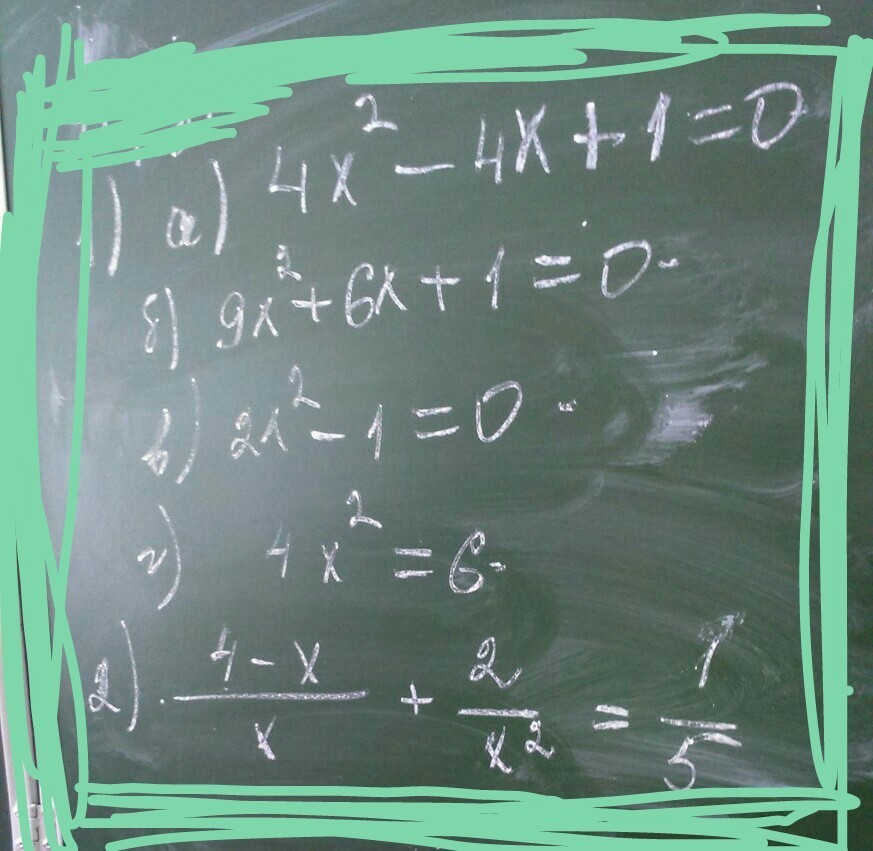 1) а) 4x² − 4x + 1 = 0
б) 9x² + 6x + 1 = 0
в) 2x² − 1 = 0
г) 4x² = 6
2) (4 − x)/x + 2/x² = 1/5